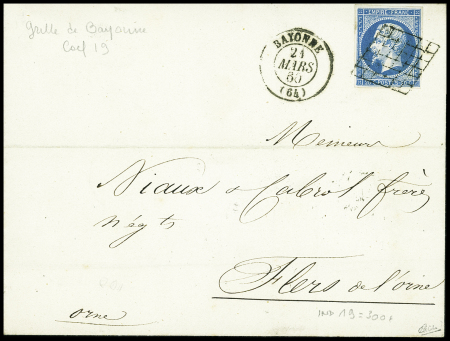 Grille de Bayonne
Coef 19
EMPIRE FRANC
BAYONNE
21
MARS
60
(64)
Messieurs
Niaux & Cabrol frères
Négts
Flers de l'orne
orne
IND 19 = 300+